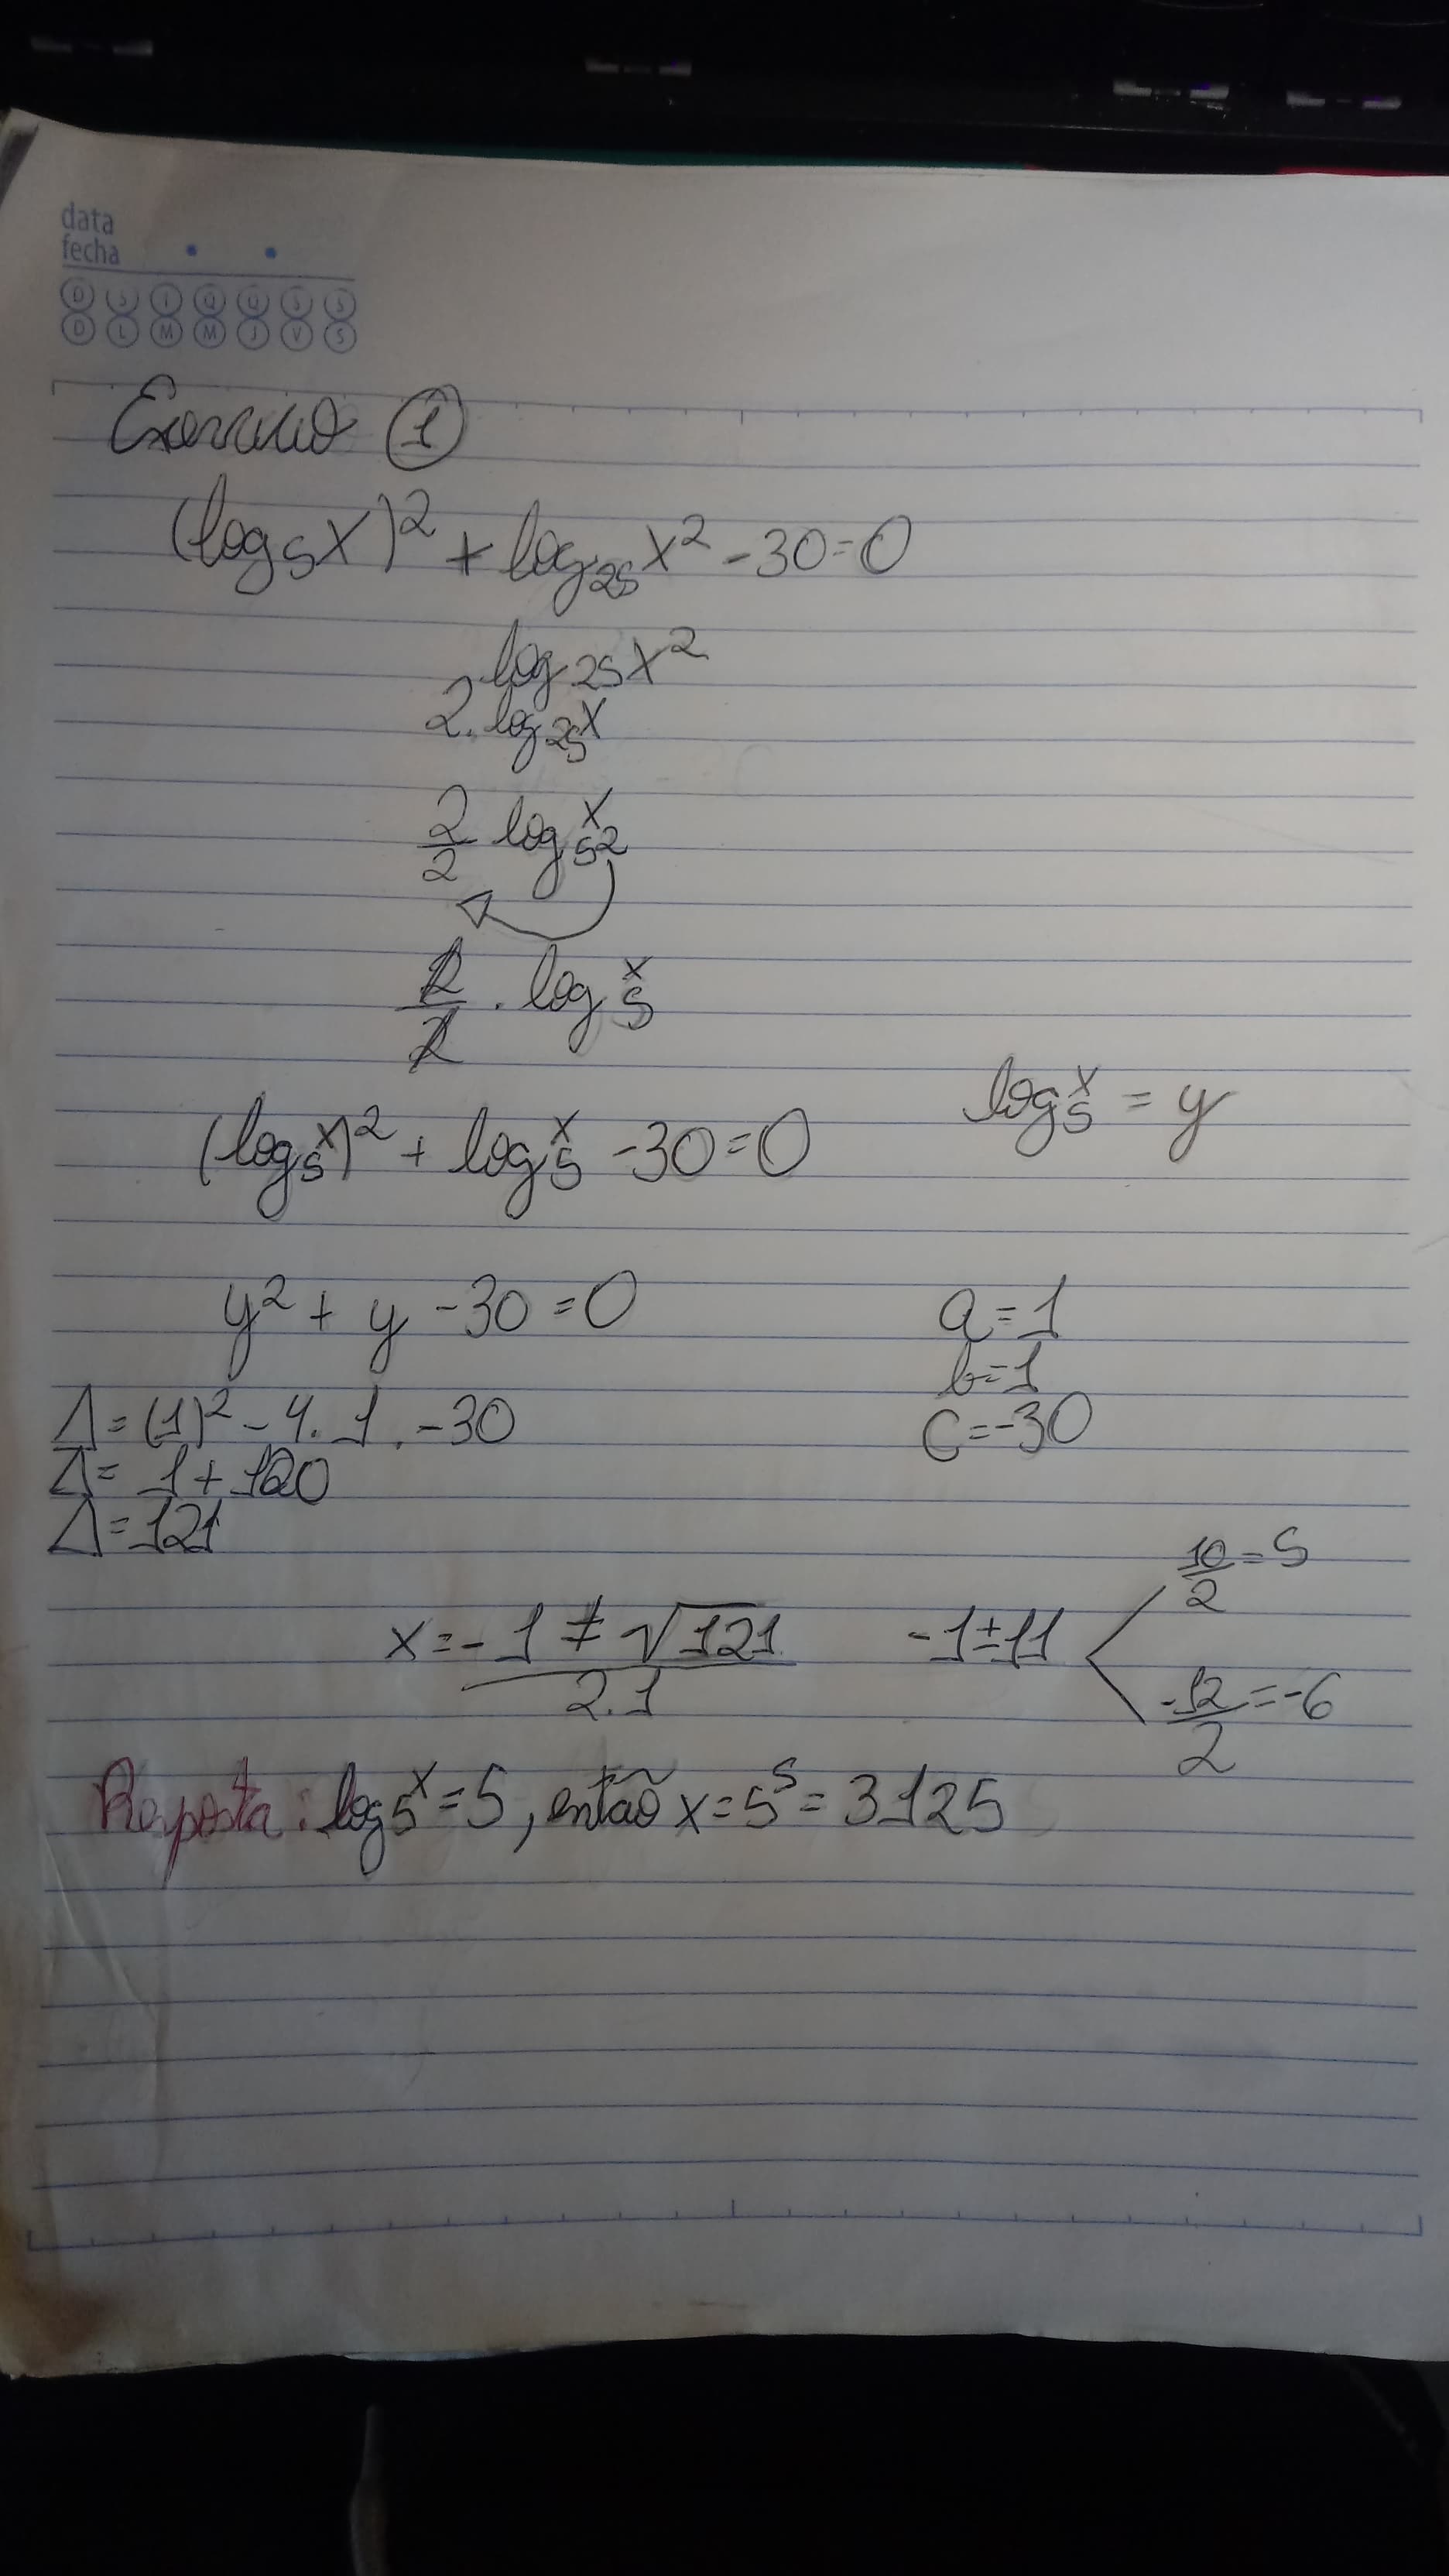 data
fecha
D S T Q Q S S
D L M M J V S
Exercício 1
(log₅x)² + log₂₅x² - 30 = 0
log₂₅x²
2. log₂₅x
2/2 log 5² x
2/2 . log₅x
log₅x = y
(log₅x)² + log₅x - 30 = 0
y² + y - 30 = 0
a = 1
b = 1
c = -30
Δ = (1)² - 4. 1 . -30
Δ = 1 + 120
Δ = 121
x = -1 ± √121 / 2.1
-1 ± 11
10/2 = 5
-12/2 = -6
Resposta: log₅x = 5, então x = 5⁵ = 3125